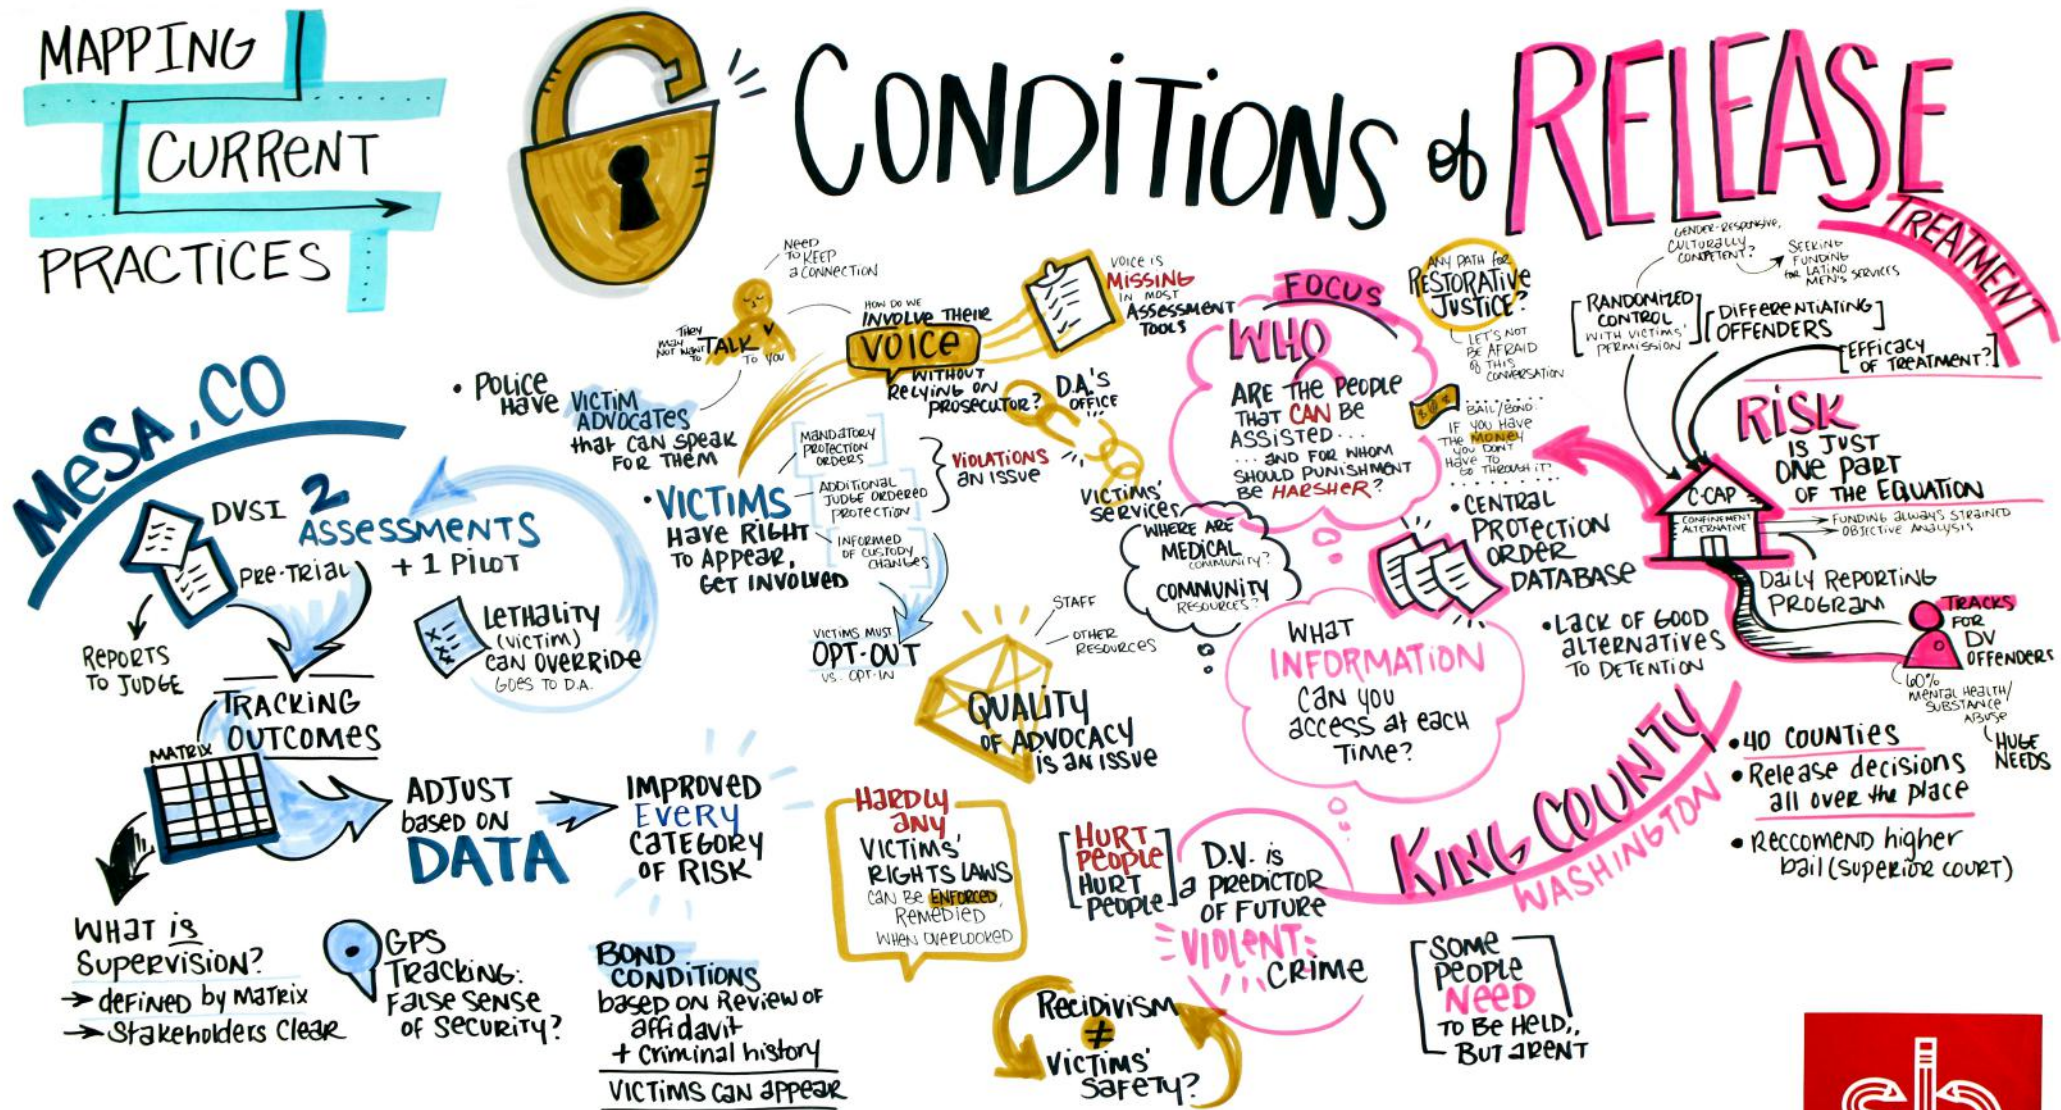 MAPPING
CURRENT
PRACTICES
CONDITIONS of RELEASE
MESA, CO
DVSI
PRE-TRIAL
2
ASSESSMENTS
+ 1 PILOT
REPORTS
TO JUDGE
LETHALITY
(VICTIM)
CAN OVERRIDE
GOES TO D.A.
TRACKING
OUTCOMES
MATRIX
ADJUST
based ON
DATA
IMPROVED
EVERY
CATEGORY
OF RISK
WHAT is
SUPERVISION?
→ defined by MATRIX
→ Stakeholders Clear
GPS
TRACKING:
FALSE SENSE
OF SECURITY?
BOND
CONDITIONS
based ON Review OF
affidavit
+ Criminal history
VICTIMS CAN appear
• POLICE
HAVE
VICTIM
ADVOCATES
that CAN SPEAK
FOR THEM
THEY
MAY
NOT WANT
TO
TALK
TO YOU
NEED
TO KEEP
a CONNECTION
HOW DO WE
INVOLVE THEIR
VOICE
WITHOUT
RELYING ON
PROSECUTOR?
VOICE IS
MISSING
IN MOST
ASSESSMENT
TOOLS
• VICTIMS
HAVE RIGHT
TO APPEAR,
GET INVOLVED
MANDATORY
PROTECTION
ORDERS
ADDITIONAL
JUDGE ORDERED
PROTECTION
INFORMED
OF CUSTODY
CHANGES
VIOLATIONS
AN ISSUE
VICTIMS MUST
OPT-OUT
VS. OPT-IN
D.A.'S
OFFICE
VICTIMS'
SERVICES
WHERE ARE
MEDICAL
COMMUNITY?
COMMUNITY
RESOURCES?
STAFF
OTHER
RESOURCES
QUALITY
OF ADVOCACY
IS AN ISSUE
HARDLY
ANY
VICTIMS'
RIGHTS LAWS
CAN BE ENFORCED,
REMEDIED
WHEN OVERLOOKED
HURT
PEOPLE
HURT
PEOPLE
D.V. is
a PREDICTOR
OF FUTURE
VIOLENT
CRIME
RECIDIVISM
≠
VICTIMS'
SAFETY?
FOCUS
WHO
ARE THE PEOPLE
THAT CAN BE
ASSISTED...
... AND FOR WHOM
SHOULD PUNISHMENT
BE HARSHER?
WHAT
INFORMATION
CAN YOU
access at each
TIME?
ANY PATH for
RESTORATIVE
JUSTICE?
LET'S NOT
BE AFRAID
OF THIS
CONVERSATION
BAIL/BOND:
IF YOU HAVE
THE MONEY
YOU DON'T
HAVE TO
GO THROUGH IT?
• CENTRAL
PROTECTION
ORDER
DATABASE
• LACK OF GOOD
ALTERNATIVES
TO DETENTION
TREATMENT
GENDER-RESPONSIVE,
CULTURALLY
COMPETENT?
SEEKING
FUNDING
for LATINO
MEN'S SERVICES
RANDOMIZED
CONTROL
WITH VICTIMS'
PERMISSION
DIFFERENTIATING
OFFENDERS
EFFICACY
OF TREATMENT?
RISK
IS JUST
ONE PART
OF THE EQUATION
C-CAP
CONFINEMENT
ALTERNATIVE
FUNDING ALWAYS STRAINED
OBJECTIVE ANALYSIS
DAILY REPORTING
PROGRAM
TRACKS
FOR
DV
OFFENDERS
60%
MENTAL HEALTH/
SUBSTANCE
ABUSE
HUGE
NEEDS
KING COUNTY
WASHINGTON
• 40 COUNTIES
• Release decisions
all over the place
• Reccomend higher
bail (SUPERIOR COURT)
SOME
PEOPLE
NEED
TO BE HELD,,
BUT ARENT